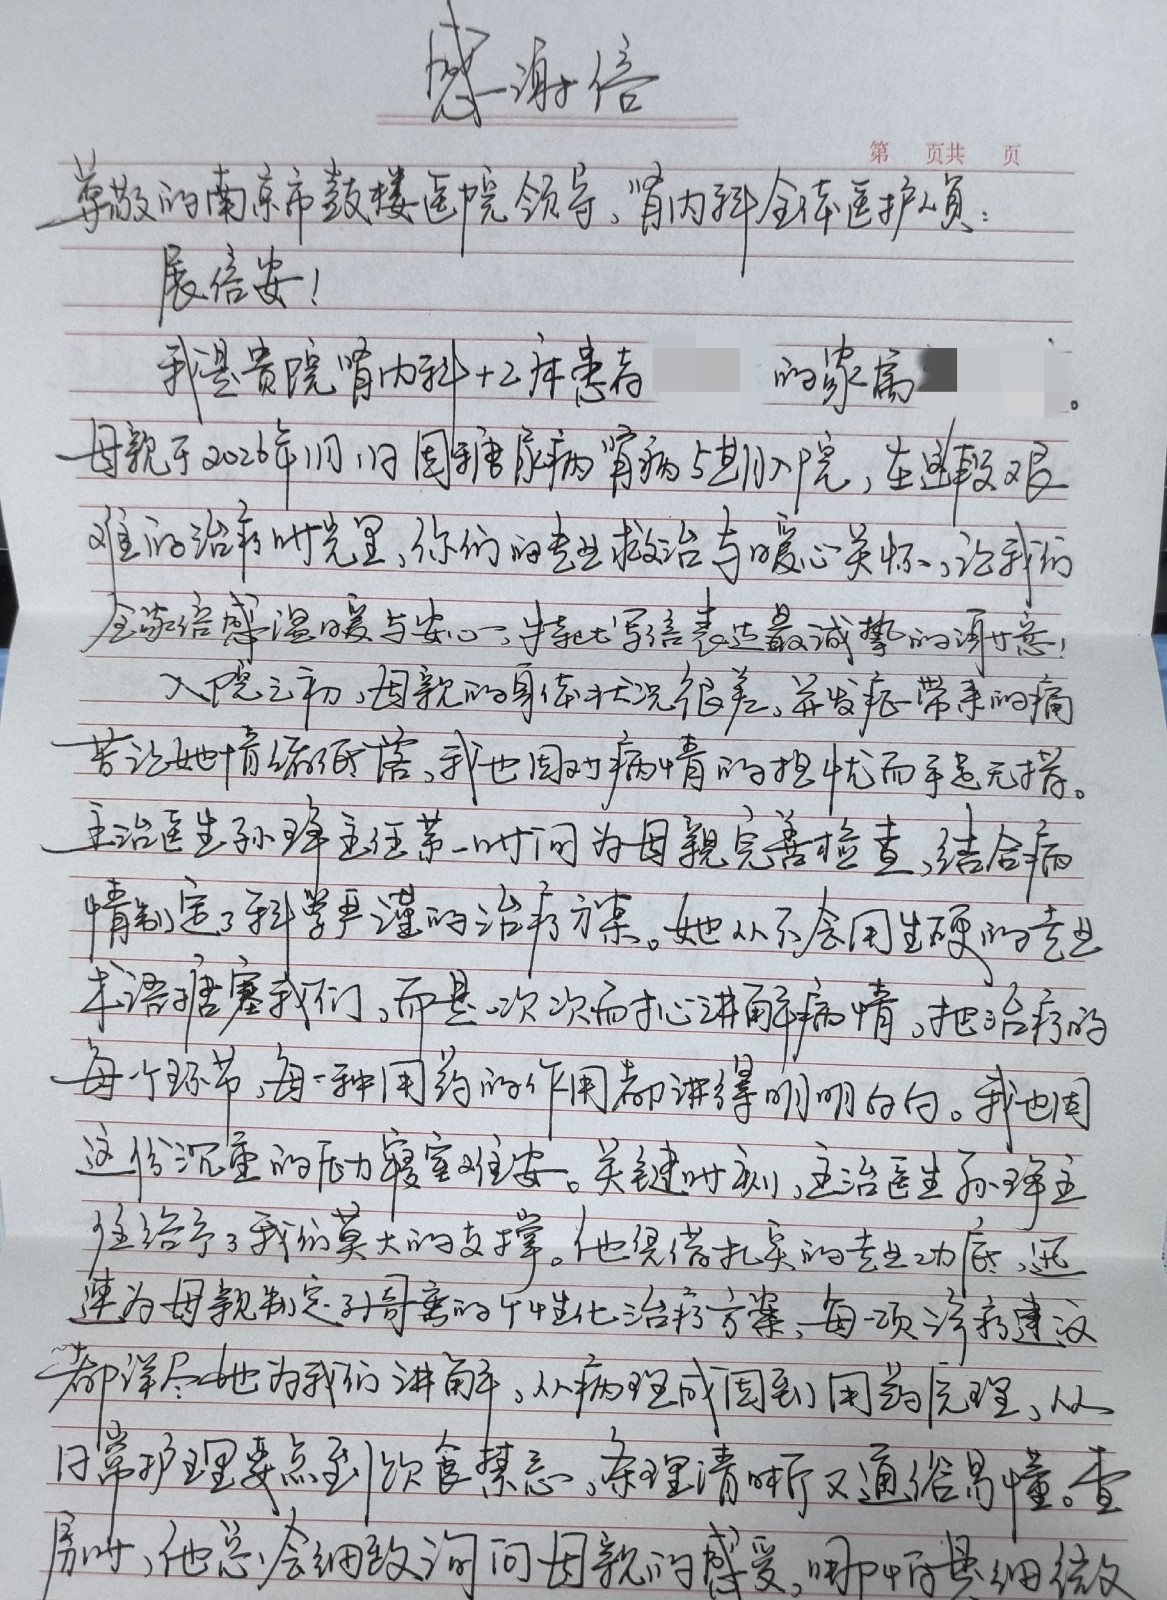 感谢信
第 页共 页
尊敬的南京市鼓楼医院领导、肾内科全体医护人员：
展信安！
我是贵院肾内科+2床患者 的家属 。
母亲于2026年1月1日因糖尿病肾病5期入院，在这段艰
难的治疗时光里，你们的专业救治与暖心关怀，让我们
全家倍感温暖与安心，特此写信表达最诚挚的谢意！
入院之初，母亲的身体状况很差，并发症带来的痛
苦让她情绪低落，我也因对病情的担忧而手足无措。
主治医生孙琤主任第一时间为母亲完善检查，结合病
情制定了科学严谨的治疗方案。她从不会用生硬的专业
术语搪塞我们，而是一次次耐心讲解病情，把治疗的
每个环节，每一种用药的作用都讲得明明白白。我也因
这份沉重的压力寝室难安。关键时刻，主治医生孙琤主
任给予了我们莫大的支撑。他凭借扎实的专业功底，迅
速为母亲制定了哥密的个性化治疗方案，每一项诊疗建议
都详尽地为我们讲解，从病理成因到用药原理，从
日常护理要点到饮食禁忌，条理清晰又通俗易懂。查
房时，他总会细致询问母亲的感受，哪怕是细微